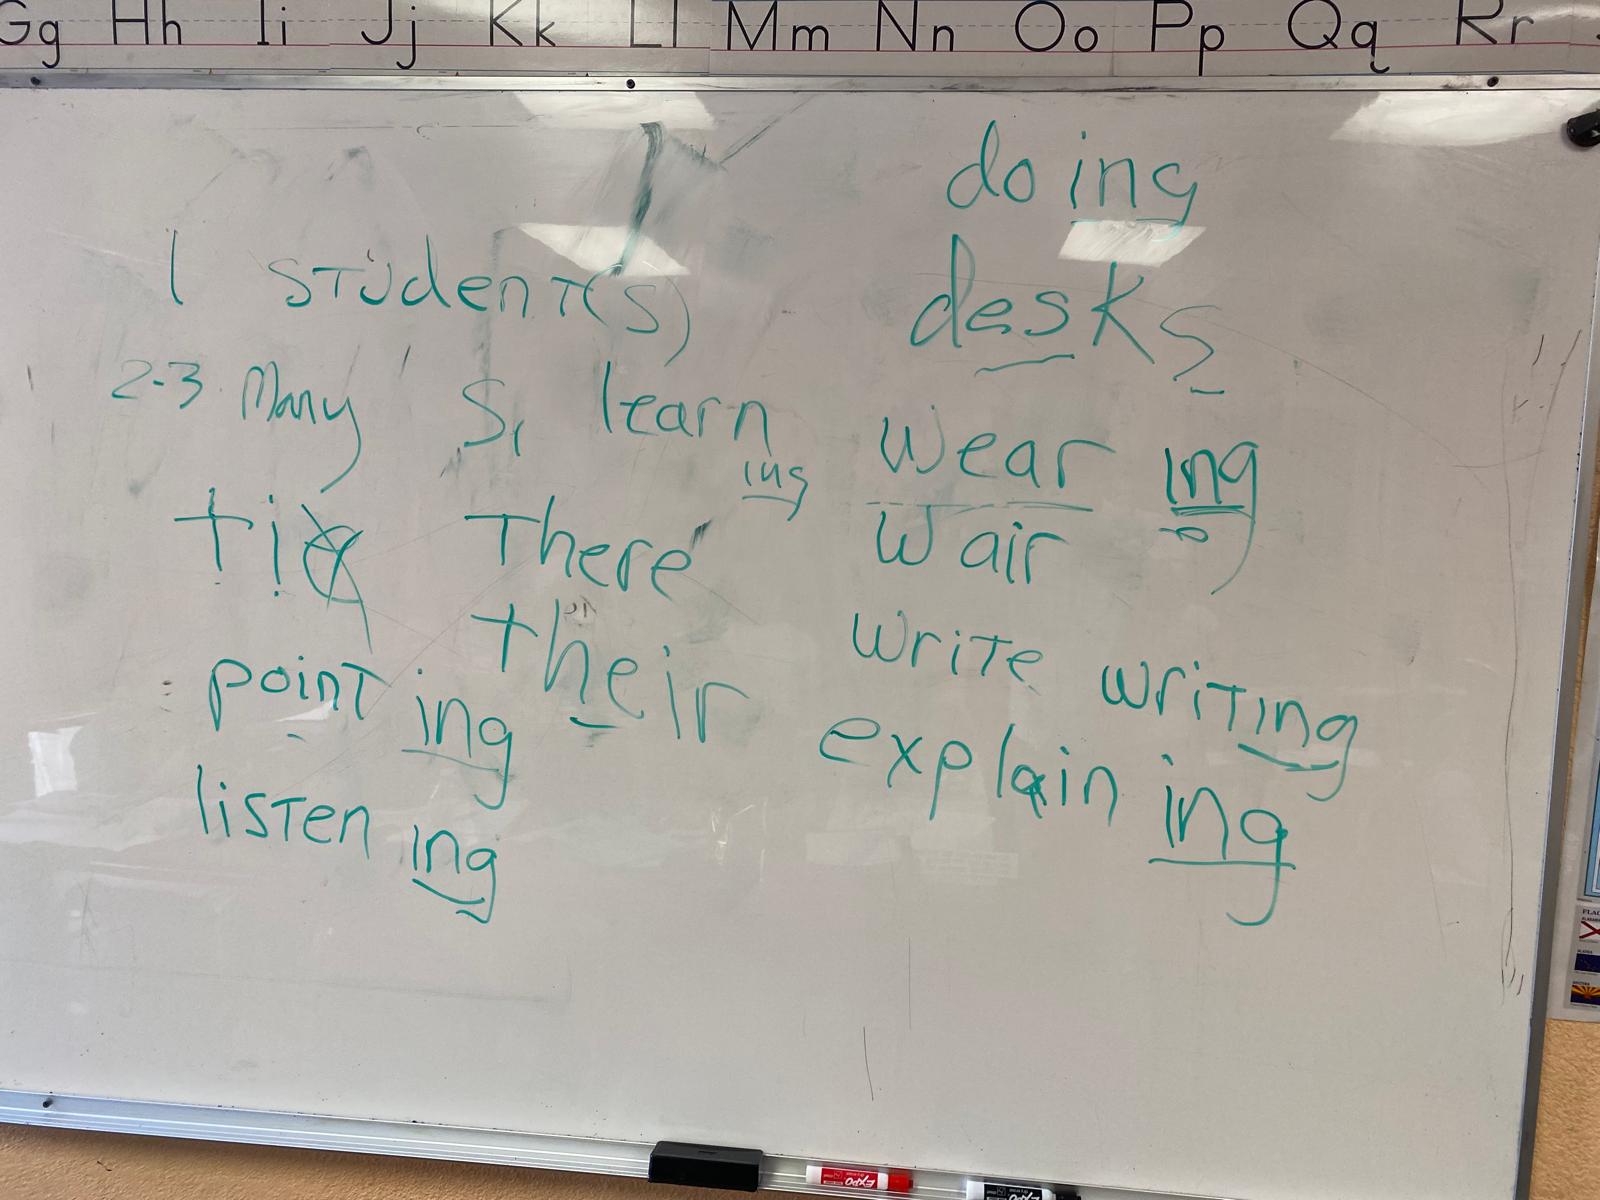 Gg Hh Ii Jj Kk Ll Mm Nn Oo Pp Qq Rr
doing
1 student(s)
desks
2-3 Many S, learn
ing
wearing
There
wair
their
write writing
pointing
explaining
listening
EXPO
EXPO